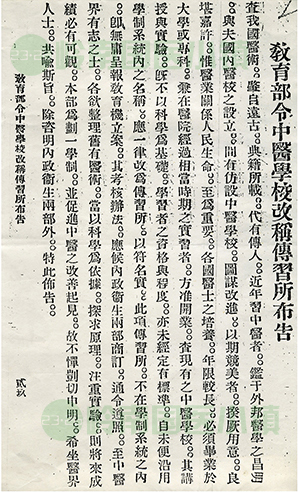 敎育部令中醫學校改稱傳習所布告
查我國醫術。鑒自遠古。典籍所載。代有傳人。近年習中醫者。鑑于外邦醫學之昌明
。與夫國內醫校之設立。間有仿設中醫學校。圖謀改進。以期競美者。揆厥用意。良
堪嘉許。惟醫業關係人民生命。至爲重要。各國醫士之培養。年限較長。必須畢業於
大學或專科。兼在醫院經過相當時期之實習者。方准開業。查現有之中醫學校。其講
授與實驗。旣不以科學爲基礎。學習者之資格與程度。亦未經定有標準。自未便沿用
學制系統內之名稱。應一律改爲傳習所。以符名實。此項傳習所。不在學制系統之內
。卽無庸呈報敎育機立案。其考核辦法。應候內政衞生兩部商訂。通令遵照。至中醫
界有志之士。各欲整理舊有醫術。當以科學爲依據。探求原理。注重實驗。則將來成
績必有可觀。本部爲劃一學制。並促進中醫之改善起見。故不憚剴切申明。希坐醫界
人士。共喻斯旨。除咨明內政衞生兩部外。特此佈告。
敎育部令中醫學校改稱傳習所布告
貳玖